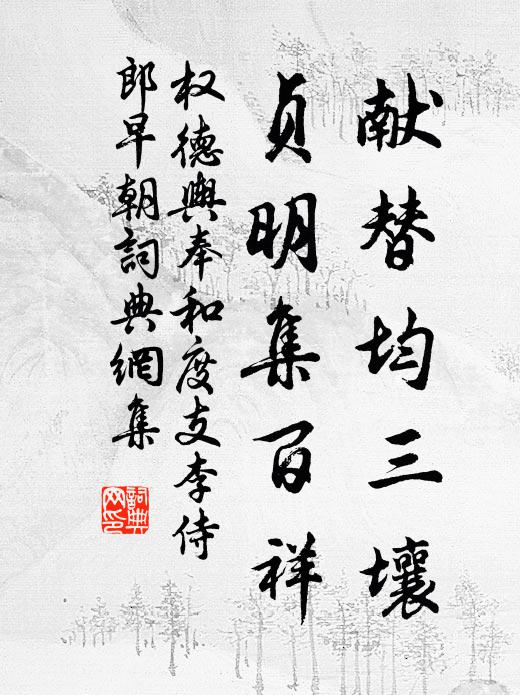 献替均三壤
贞明集百祥
权德舆奉和度支李侍
郎早朝詞典網集
詞典
网印